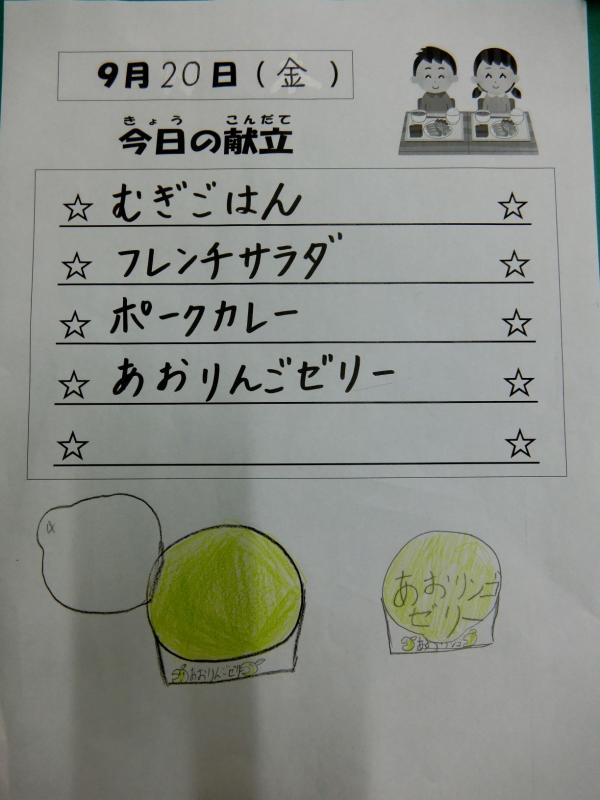 9月20日(金)
きょう こんだて
今日の献立
☆ むぎごはん ☆
☆ フレンチサラダ ☆
☆ ポークカレー ☆
☆ あおりんごゼリー ☆
☆ ☆
あおリンゴ
ゼリー
あおりんごゼリー